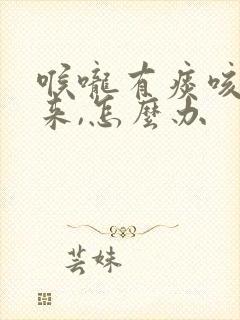 喉嚨有痰咳
来,怎麼办
芸妹